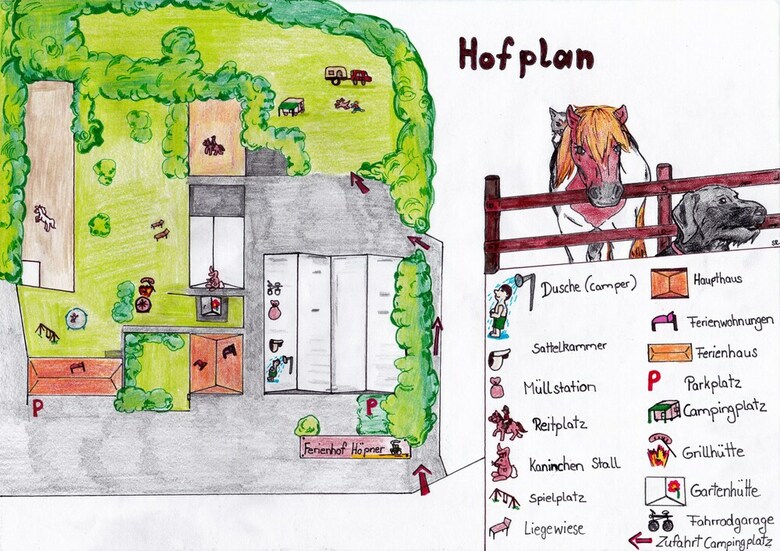 Hofplan
SR
Dusche (camper)
Sattelkammer
Müllstation
Reitplatz
Kaninchen Stall
Spielplatz
Liegewiese
Haupthaus
Ferienwohnungen
Ferienhaus
P Parkplatz
Campingplatz
Grillhütte
Gartenhütte
Fahrradgarage
Zufahrt Campingplatz
P
P
Ferienhof Höpner